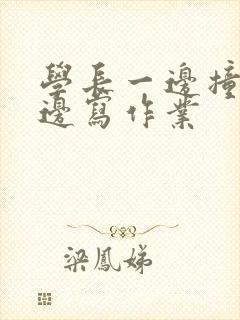 學長一邊撞
邊寫作業
梁鳳娣